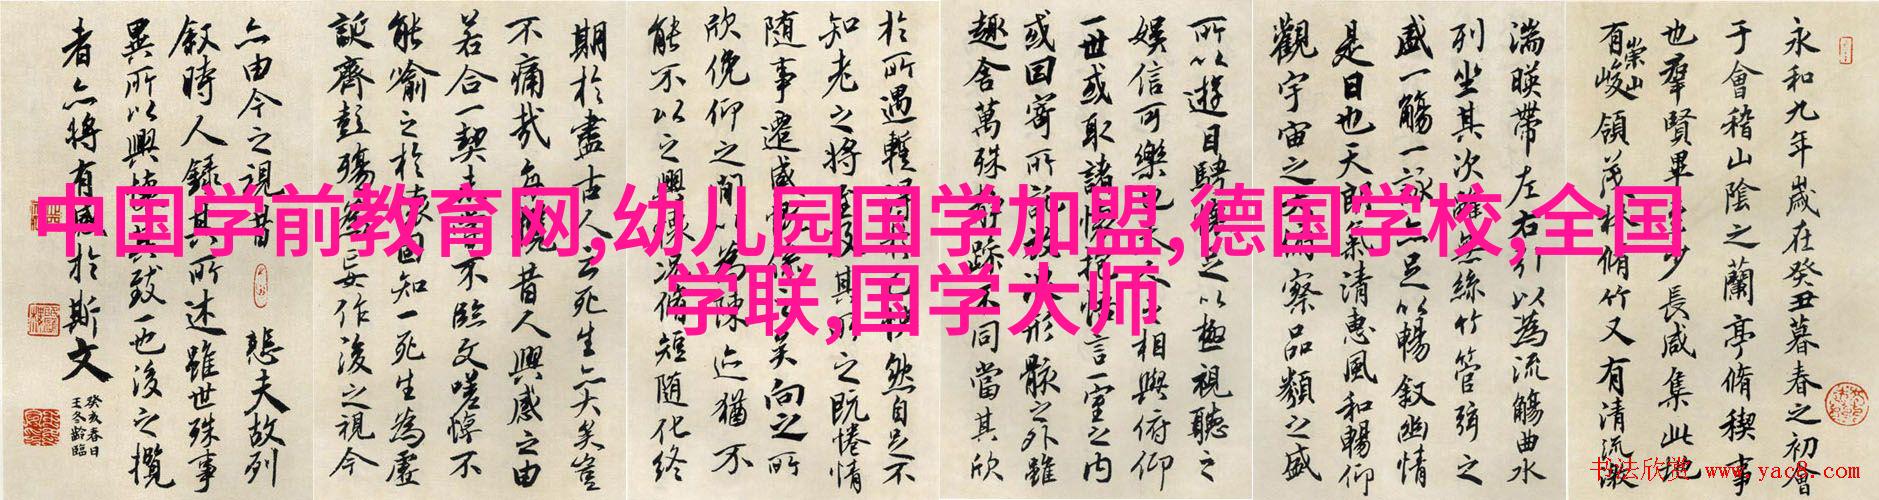 永和九年歲在癸丑暮春之初會
于會稽山陰之蘭亭脩稧事
也羣賢畢至少長咸集此地
有崇山峻領茂林脩竹又有清流激
湍暎帶左右引以為流觴曲水
列坐其次雖無絲竹管弦之
盛一觴一詠亦足以暢敘幽情
是日也天朗氣清惠風和暢仰
觀宇宙之大俯察品類之盛
所以遊目騁懷足以極視聽之
娛信可樂也夫人之相與俯仰
一世或取諸懷抱悟言一室之內
或因寄所託放浪形骸之外雖
趣舍萬殊靜躁不同當其欣
於所遇暫得於己快然自足不
知老之將至及其所之既惓情
隨事遷感慨係之矣向之所
欣俛仰之間以為陳迹猶不
能不以之興懷況脩短隨化終
期於盡古人云死生亦大矣豈
不痛哉每攬昔人興感之由
若合一契未嘗不臨文嗟悼不
能喻之於懷固知一死生為虛
誕齊彭殤為妄作後之視今
亦由今之視昔 悲夫故列
敘時人錄其所述雖世殊事
異所以興懷其致一也後之攬
者亦將有感於斯文
癸亥春日
王冬齡臨
中国学前教育网,幼儿园国学加盟,德国学校,全国
学联,国学大师
书法欣赏 www.yac8.com